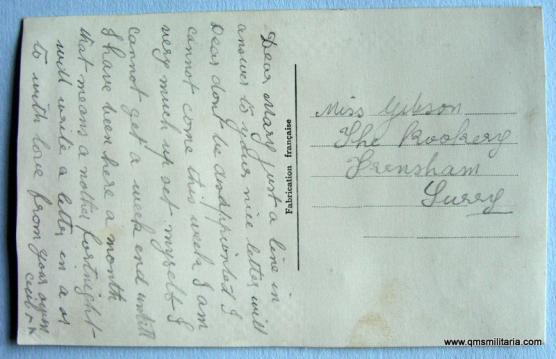 Dear Mary just a line in
answer to your nice letter will
Dear dont be anapprionted I
cannot come this week I am
very much up set myself I
cannot get a week end untill
I have been here a month
that means a nother fortnight
will write a letter in a
to with love from your own
Fabrication française
Miss Gibson
The Rookery
Frensham
Surry
www.qmsmilitaria.com